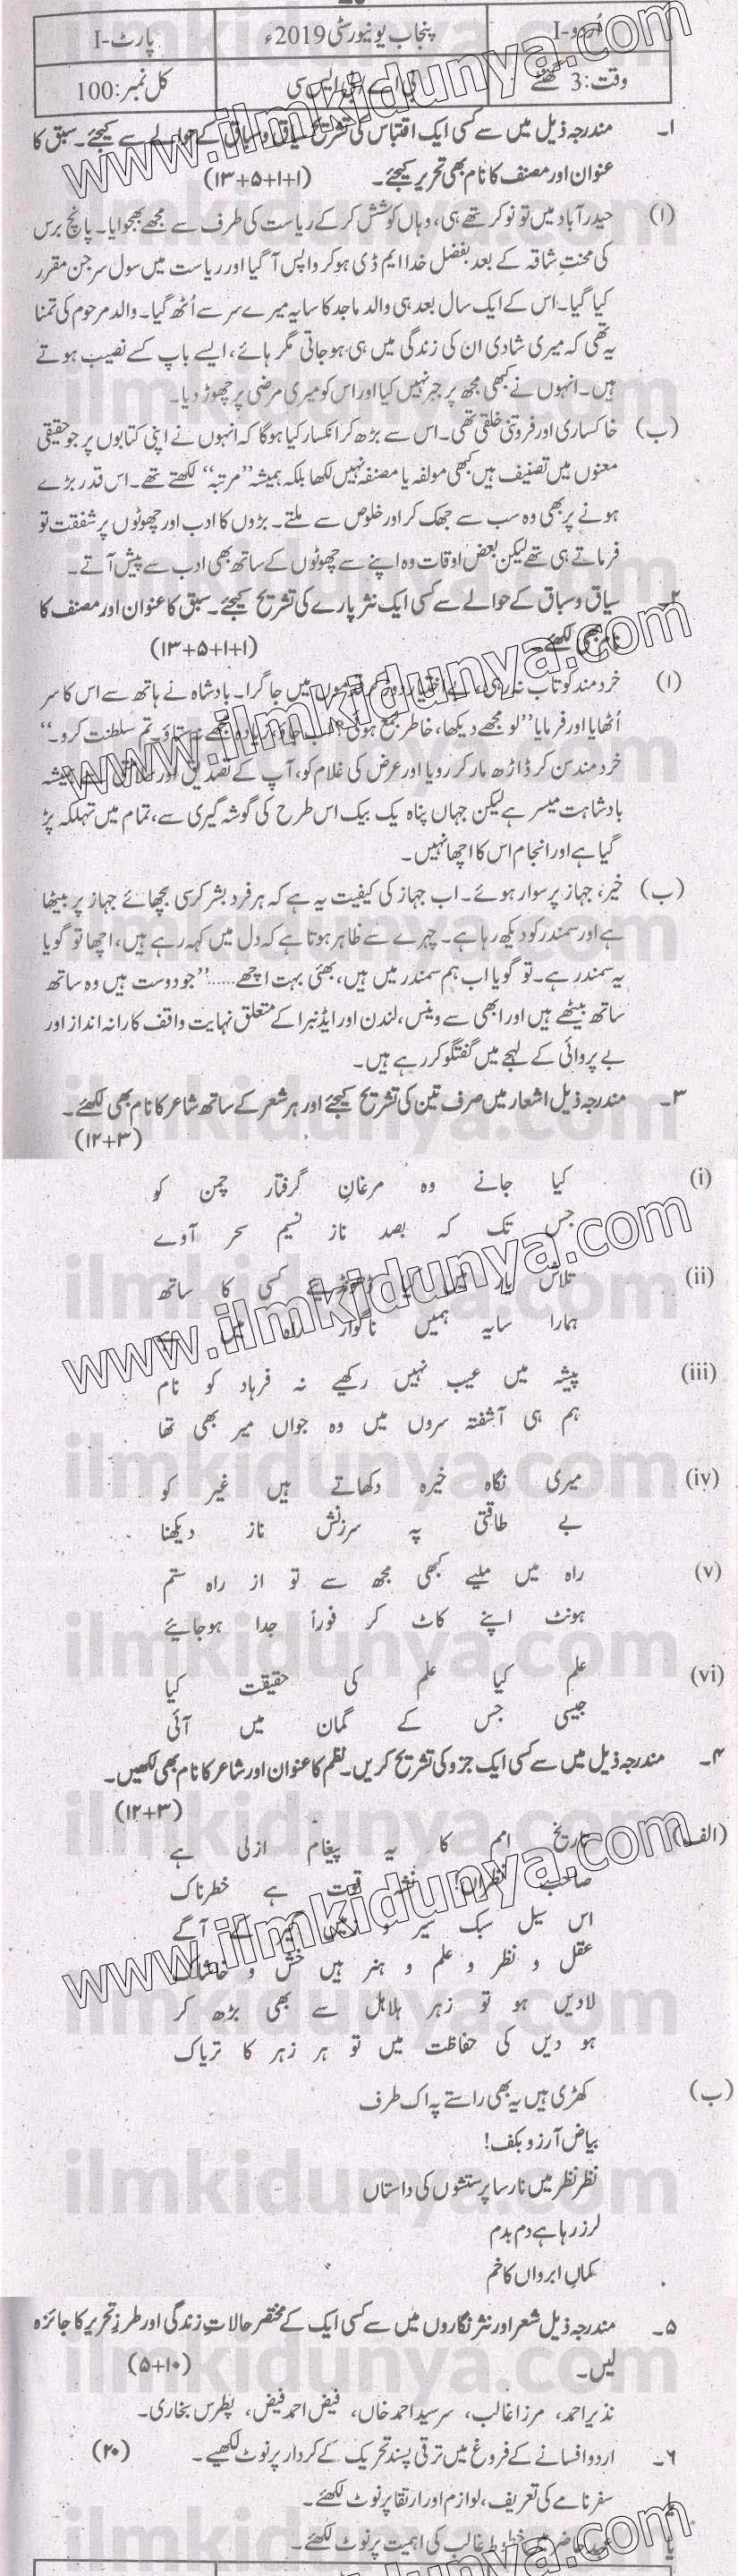 اُردو-I
پنجاب یونیورسٹی 2019ء
پارٹ-I
وقت: 3 گھنٹے
بی اے / بی ایس سی
کل نمبر: 100
۱۔ مندرجہ ذیل میں سے کسی ایک اقتباس کی تشریح سیاق و سباق کے حوالے سے کیجئے۔ سبق کا
عنوان اور مصنف کا نام بھی تحریر کیجئے۔ (۱+۱+۵+۱۳)
(ا) حیدر آباد میں تو نوکر تھے ہی، وہاں کوشش کر کے ریاست کی طرف سے مجھے بھجوایا۔ پانچ برس
کی محنتِ شاقہ کے بعد بفضل خدا ایم ڈی ہو کر واپس آ گیا اور ریاست میں سول سرجن مقرر
کیا گیا۔ اس کے ایک سال بعد ہی والد ماجد کا سایہ میرے سر سے اُٹھ گیا۔ والد مرحوم کی تمنا
یہ تھی کہ میری شادی ان کی زندگی میں ہی ہو جاتی مگر ہائے، ایسے باپ کسے نصیب ہوتے
ہیں۔ انہوں نے کبھی مجھ پر جبر نہیں کیا اور اس کو میری مرضی پر چھوڑ دیا۔
(ب) خاکساری اور فروتنی خلقی تھی۔ اس سے بڑھ کر انکسار کیا ہوگا کہ انہوں نے اپنی کتابوں پر جو حقیقی
معنوں میں تصنیف ہیں کبھی مولفہ یا مصنفہ نہیں لکھا بلکہ ہمیشہ ”مرتبہ“ لکھتے تھے۔ اس قدر بڑے
ہونے پر بھی وہ سب سے جھک کر اور خلوص سے ملتے۔ بڑوں کا ادب اور چھوٹوں پر شفقت تو
فرماتے ہی تھے لیکن بعض اوقات وہ اپنے سے چھوٹوں کے ساتھ بھی ادب سے پیش آتے۔
۲۔ سیاق و سباق کے حوالے سے کسی ایک نثر پارے کی تشریح کیجئے۔ سبق کا عنوان اور مصنف کا
نام بھی لکھئے۔ (۱+۱+۵+۱۳)
(ا) خرد مند کو تاب نہ رہی، بے اختیار دوڑ کر قدموں میں جا گرا۔ بادشاہ نے ہاتھ سے اس کا سر
اُٹھایا اور فرمایا ”لو مجھے دیکھا، خاطر جمع ہوئی؟ اب جاؤ، زیادہ مجھے نہ ستاؤ۔ تم سلطنت کرو۔“
خرد مند سن کر ڈاڑھ مار کر رویا اور عرض کی غلام کو، آپ کے تصدیق اور سلامتی سے ہمیشہ
بادشاہت میسر ہے لیکن جہاں پناہ یک بیک اس طرح کی گوشہ گیری سے، تمام میں تہلکہ پڑ
گیا ہے اور انجام اس کا اچھا نہیں۔
(ب) خیر، جہاز پر سوار ہوئے۔ اب جہاز کی کیفیت یہ ہے کہ ہر فرد بشر کرسی بچھائے جہاز پر بیٹھا
ہے اور سمندر کو دیکھ رہا ہے۔ چہرے سے ظاہر ہوتا ہے کہ دل میں کہہ رہے ہیں، اچھا تو گویا
یہ سمندر ہے۔ تو گویا اب ہم سمندر میں ہیں، بھئی بہت اچھے......“ جو دوست ہیں وہ ساتھ
ساتھ بیٹھے ہیں اور ابھی سے وینس، لندن اور ایڈنبرا کے متعلق نہایت واقف کارانہ انداز اور
بے پروائی کے لہجے میں گفتگو کر رہے ہیں۔
۳۔ مندرجہ ذیل اشعار میں صرف تین کی تشریح کیجئے اور ہر شعر کے ساتھ شاعر کا نام بھی لکھئے۔
(۱۲+۳)
(i) کیا جانے وہ مرغانِ گرفتار چمن کو
جس تک کہ بصد ناز نسیم سحر آوے
(ii) تلاش یار میں کیا ڈھونڈیے کسی کا ساتھ
ہمارا سایہ ہمیں ناگوار راہ میں ہے
(iii) پیشہ میں عیب نہیں رکھیے نہ فرہاد کو نام
ہم ہی آشفتہ سروں میں وہ جواں میر بھی تھا
(iv) میری نگاہ خیرہ دکھاتے ہیں غیر کو
بے طاقتی پہ سرزنش ناز دیکھنا
(v) راہ میں ملیے کبھی مجھ سے تو از راہ ستم
ہونٹ اپنے کاٹ کر فوراً جدا ہو جائیے
(vi) علم کیا علم کی حقیقت کیا
جیسی جس کے گمان میں آئی
۴۔ مندرجہ ذیل میں سے کسی ایک جزو کی تشریح کریں۔ نظم کا عنوان اور شاعر کا نام بھی لکھیں۔
(۱۲+۳)
(الف) تاریخ امم کا یہ پیغام ازلی ہے
صاحب نظراں! نشہ قوت ہے خطرناک
اس سیل سبک سیر و زمیں گیر کے آگے
عقل و نظر و علم و ہنر ہیں خس و خاشاک
لادیں ہو تو زہر ہلاہل سے بھی بڑھ کر
ہو دیں کی حفاظت میں تو ہر زہر کا تریاک
(ب) کھڑی ہیں یہ بھی راستے پہ اک طرف
بیاض آرزو بکف!
نظر نظر میں نارسا پرستشوں کی داستاں
لرز رہا ہے دم بدم
کماں ابرواں کا خم
۵۔ مندرجہ ذیل شعرا اور نثر نگاروں میں سے کسی ایک کے مختصر حالات زندگی اور طرز تحریر کا جائزہ
لیں۔ (۵+۱۰)
نذیر احمد، مرزا غالب، سر سید احمد خاں، فیض احمد فیض، پطرس بخاری۔
۶۔ اردو افسانے کے فروغ میں ترقی پسند تحریک کے کردار پر نوٹ لکھیے۔ (۲۰)
یا سفر نامے کی تعریف، لوازم اور ارتقا پر نوٹ لکھئے۔
یا خطوط غالب کی اہمیت پر نوٹ لکھئے۔
www.ilmkidunya.com
ilmkidunya.com